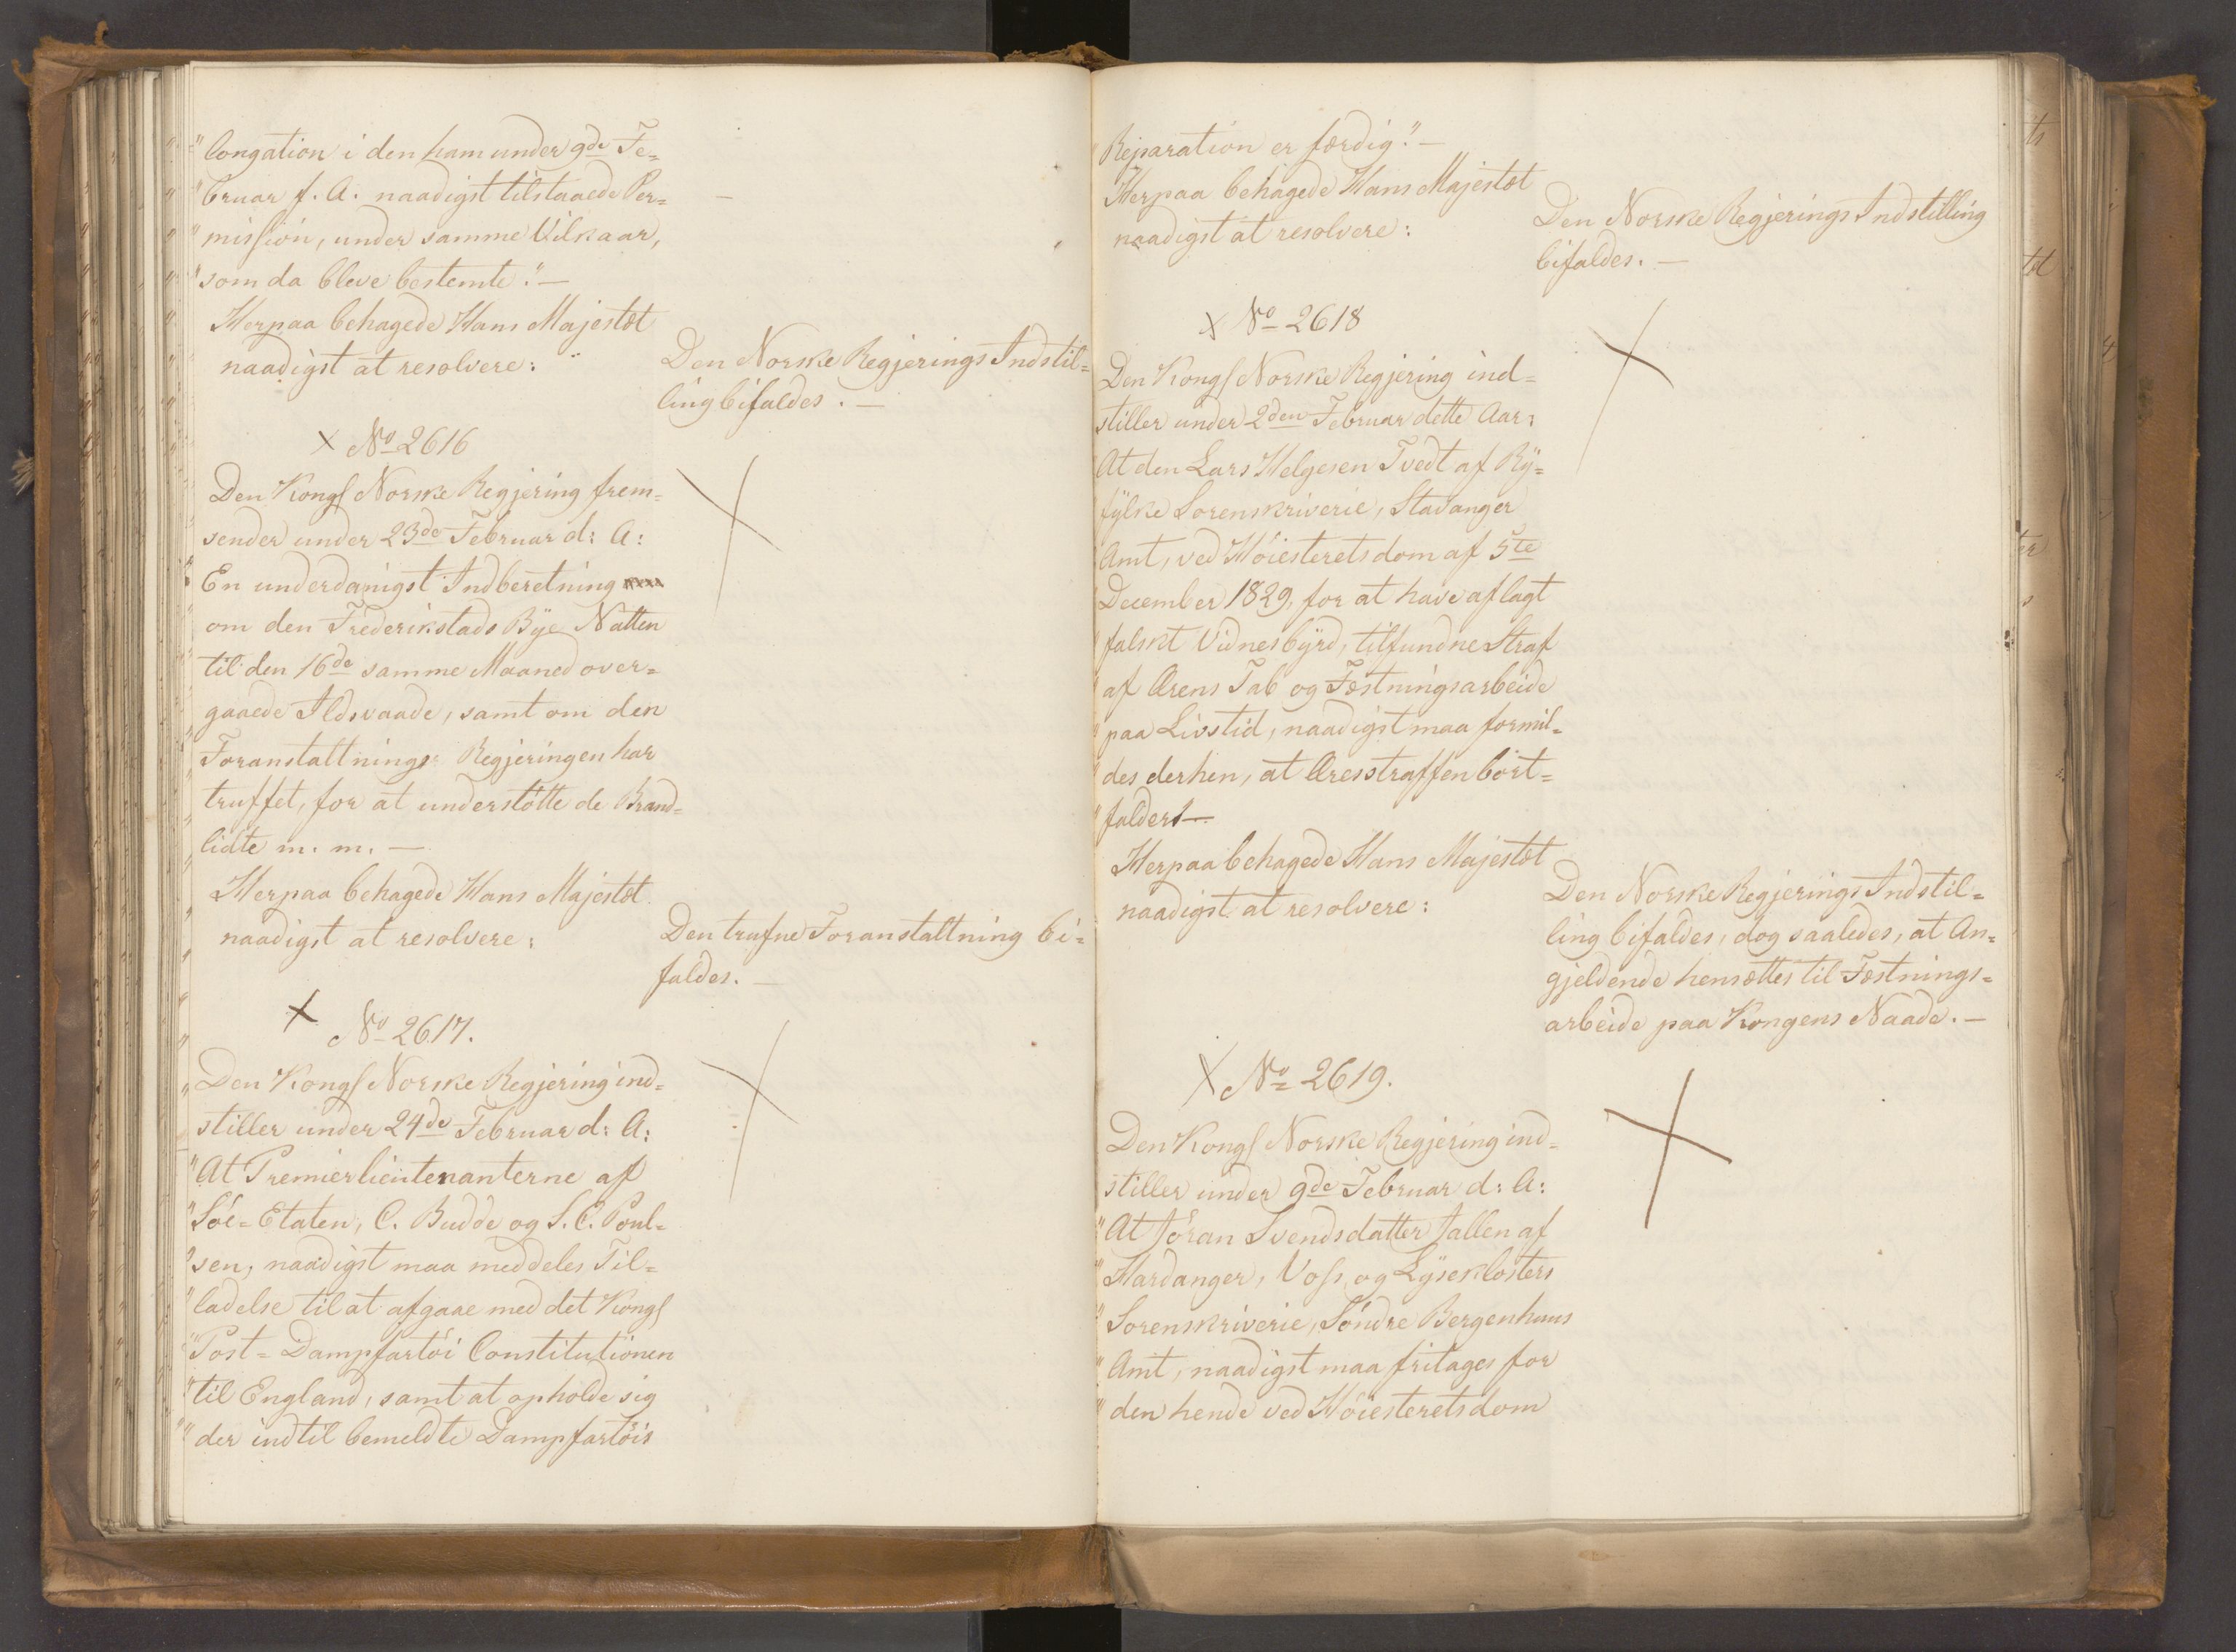 "longation i den ham under 9de Fe=
"bruar f. A. naadigst tilstaaede Per=
"mission, under samme Vilkaar,
"som da bleve bestemte." —
Herpaa behagede Hans Majestæt
naadigst at resolvere:
Den Norske Regjerings Indstil=
ling bifaldes. —
No 2616
Den Kongl Norske Regjering frem=
sender under 23de Februar d: A:
En underdanigst Indberetning
om den Frederikstads Bye Natten
til den 16de samme Maaned over=
gaaede Ildsvaade, samt om den
Foranstaltning Regjeringen har
truffet, for at understötte de Brand=
lidte m. m. —
Herpaa behagede Hans Majestæt
naadigst at resolvere:
Den trufne Foranstaltning bi=
faldes. —
No 2617.
Den Kongl Norske Regjering ind=
stiller under 24de Februar d: A:
"At Premierlieutenanterne af
"Söe=Etaten, C. Budde og S. C. Poul=
"sen, naadigst maa meddeles Til=
"ladelse til at afgaae med det Kongl
"Post=Dampfartöi Constitutionen
"til England, samt at opholde sig
"der indtil bemeldte Dampfartöis
Reparation er færdig." —
Herpaa behagede Hans Majestæt
naadigst at resolvere:
Den Norske Regjerings Indstilling
bifaldes. —
No 2618
Den Kongl Norske Regjering ind=
stiller under 2den Februar dette Aar:
At den Lars Helgesen Tvedt af Ry=
fylke Sorenskriverie, Stavanger
Amt, ved Höiesteretsdom af 5te
December 1829, for at have aflagt
falskt Vidnesbyrd, tilfundne Straf
"af Ærens Tab og Fæstningsarbeide
"paa Livstid, naadigst maa formil=
"des derhen, at Æresstraffen bort=
"falder. —
Herpaa behagede Hans Majestæt
naadigst at resolvere:
Den Norske Regjerings Indstil=
ling bifaldes, dog saaledes, at An=
gjeldende hensættes til Fæstnings=
arbeide paa Kongens Naade. —
No 2619.
Den Kongl Norske Regjering ind=
stiller under 9de Februar d: A:
"At Jöran Svendsdatter Jallen af
"Hardanger, Voss, og Lyseklosters
"Sorenskriverie, Söndre Bergenhuus
"Amt, naadigst maa fritages for
"den hende ved Höiesteretsdom